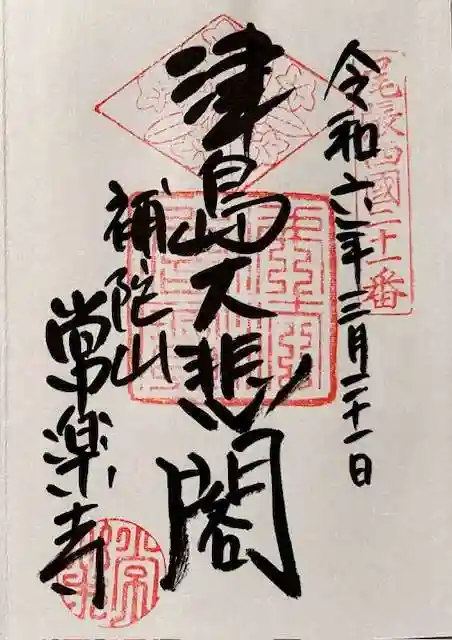 尾張西国二十一番
令和六年三月二十一日
津島大悲閣
補陀山
常楽寺